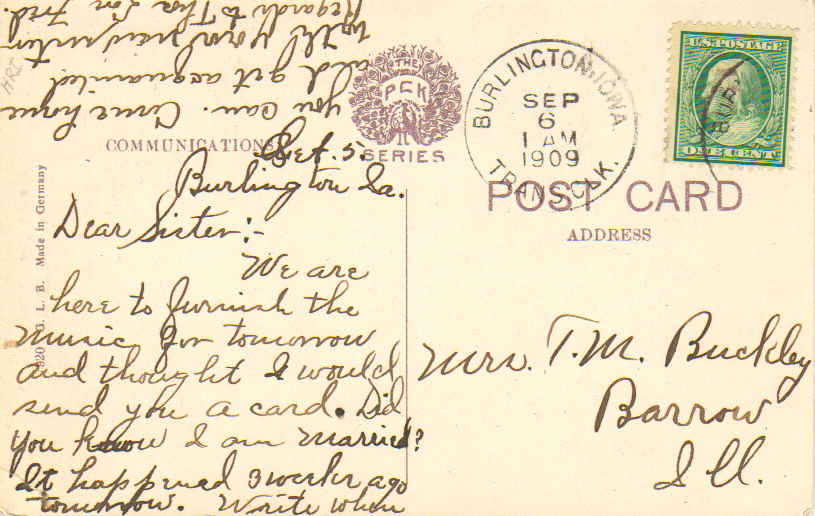 THE
PCK
SERIES
BURLINGTON, IOWA.
SEP
6
1 AM
1909
TRANS. CLK.
U.S. POSTAGE
ONE CENT
COMMUNICATIONS
POST CARD
ADDRESS
G. L. B. Made in Germany
Sept. 5.
Burlington Ia.
Dear Sister:-
We are
here to furnish the
music for tomorrow
and thought I would
send you a card. Did
you know I am married?
It happened 3 weeks ago
tomorrow. Write when
you can. Come home
and get acquainted
with your new sister
Regards to Tho Lon Fred.
Mrs. T. M. Buckley
Barrow
Ill.